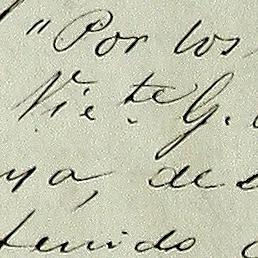 "Por los
Vie.te G.
ya, de
tenido